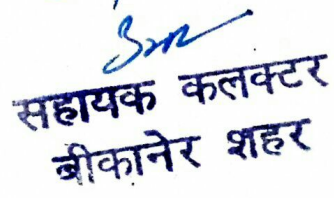 सहायक कलक्टर
बीकानेर शहर